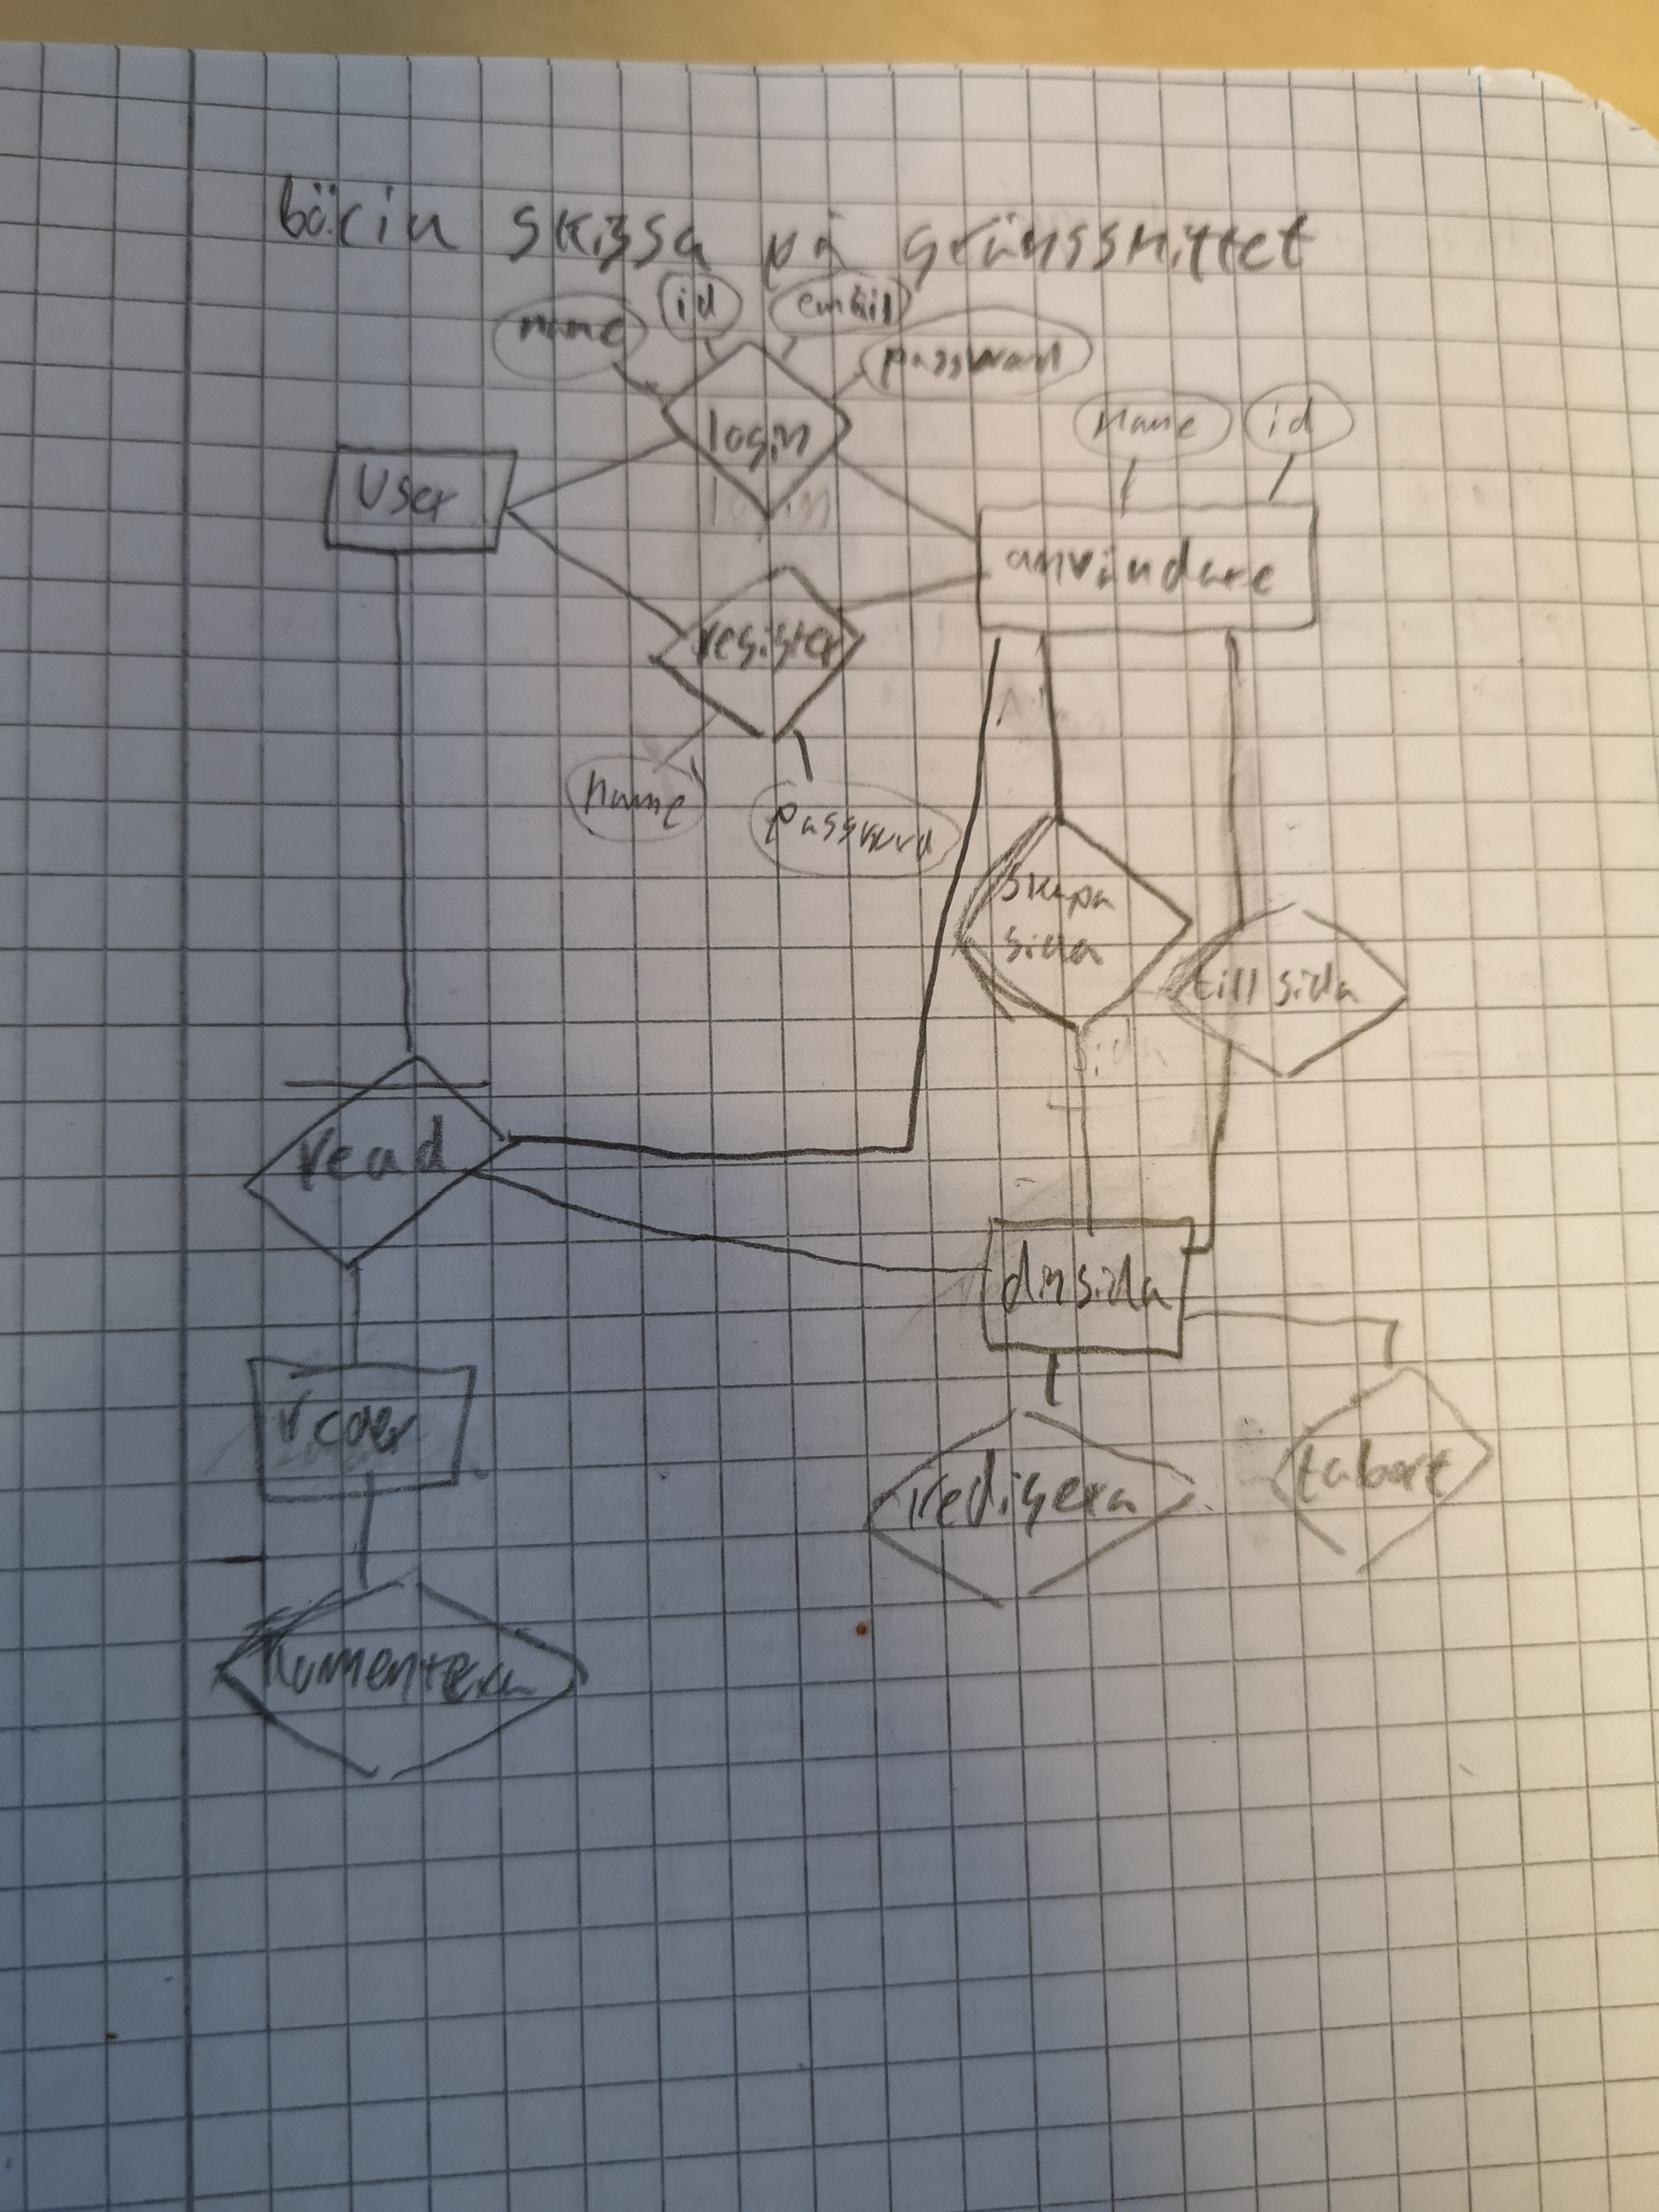 börja skissa på gränssnittet
name id email password
login
name id
User
användare
register
name password
skapa
sida
till sida
read
din sida
redigera
tabort
kommentera